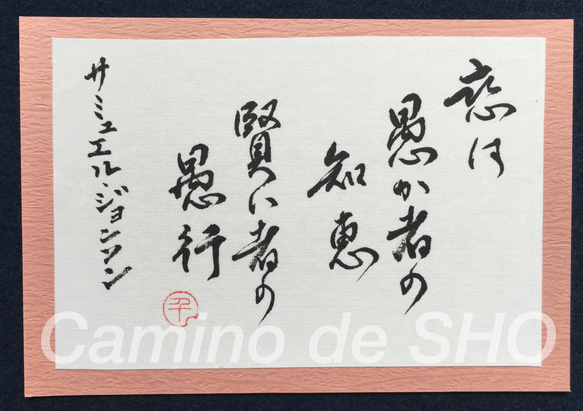 恋は
愚か者の
知恵
賢い者の
愚行
サミュエル・ジョンソン
Camino de SHO